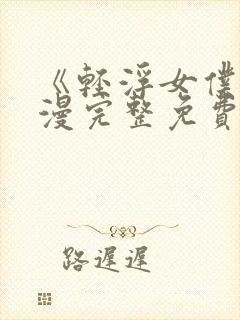 《轻浮女僕
漫完整免費
路遲遲